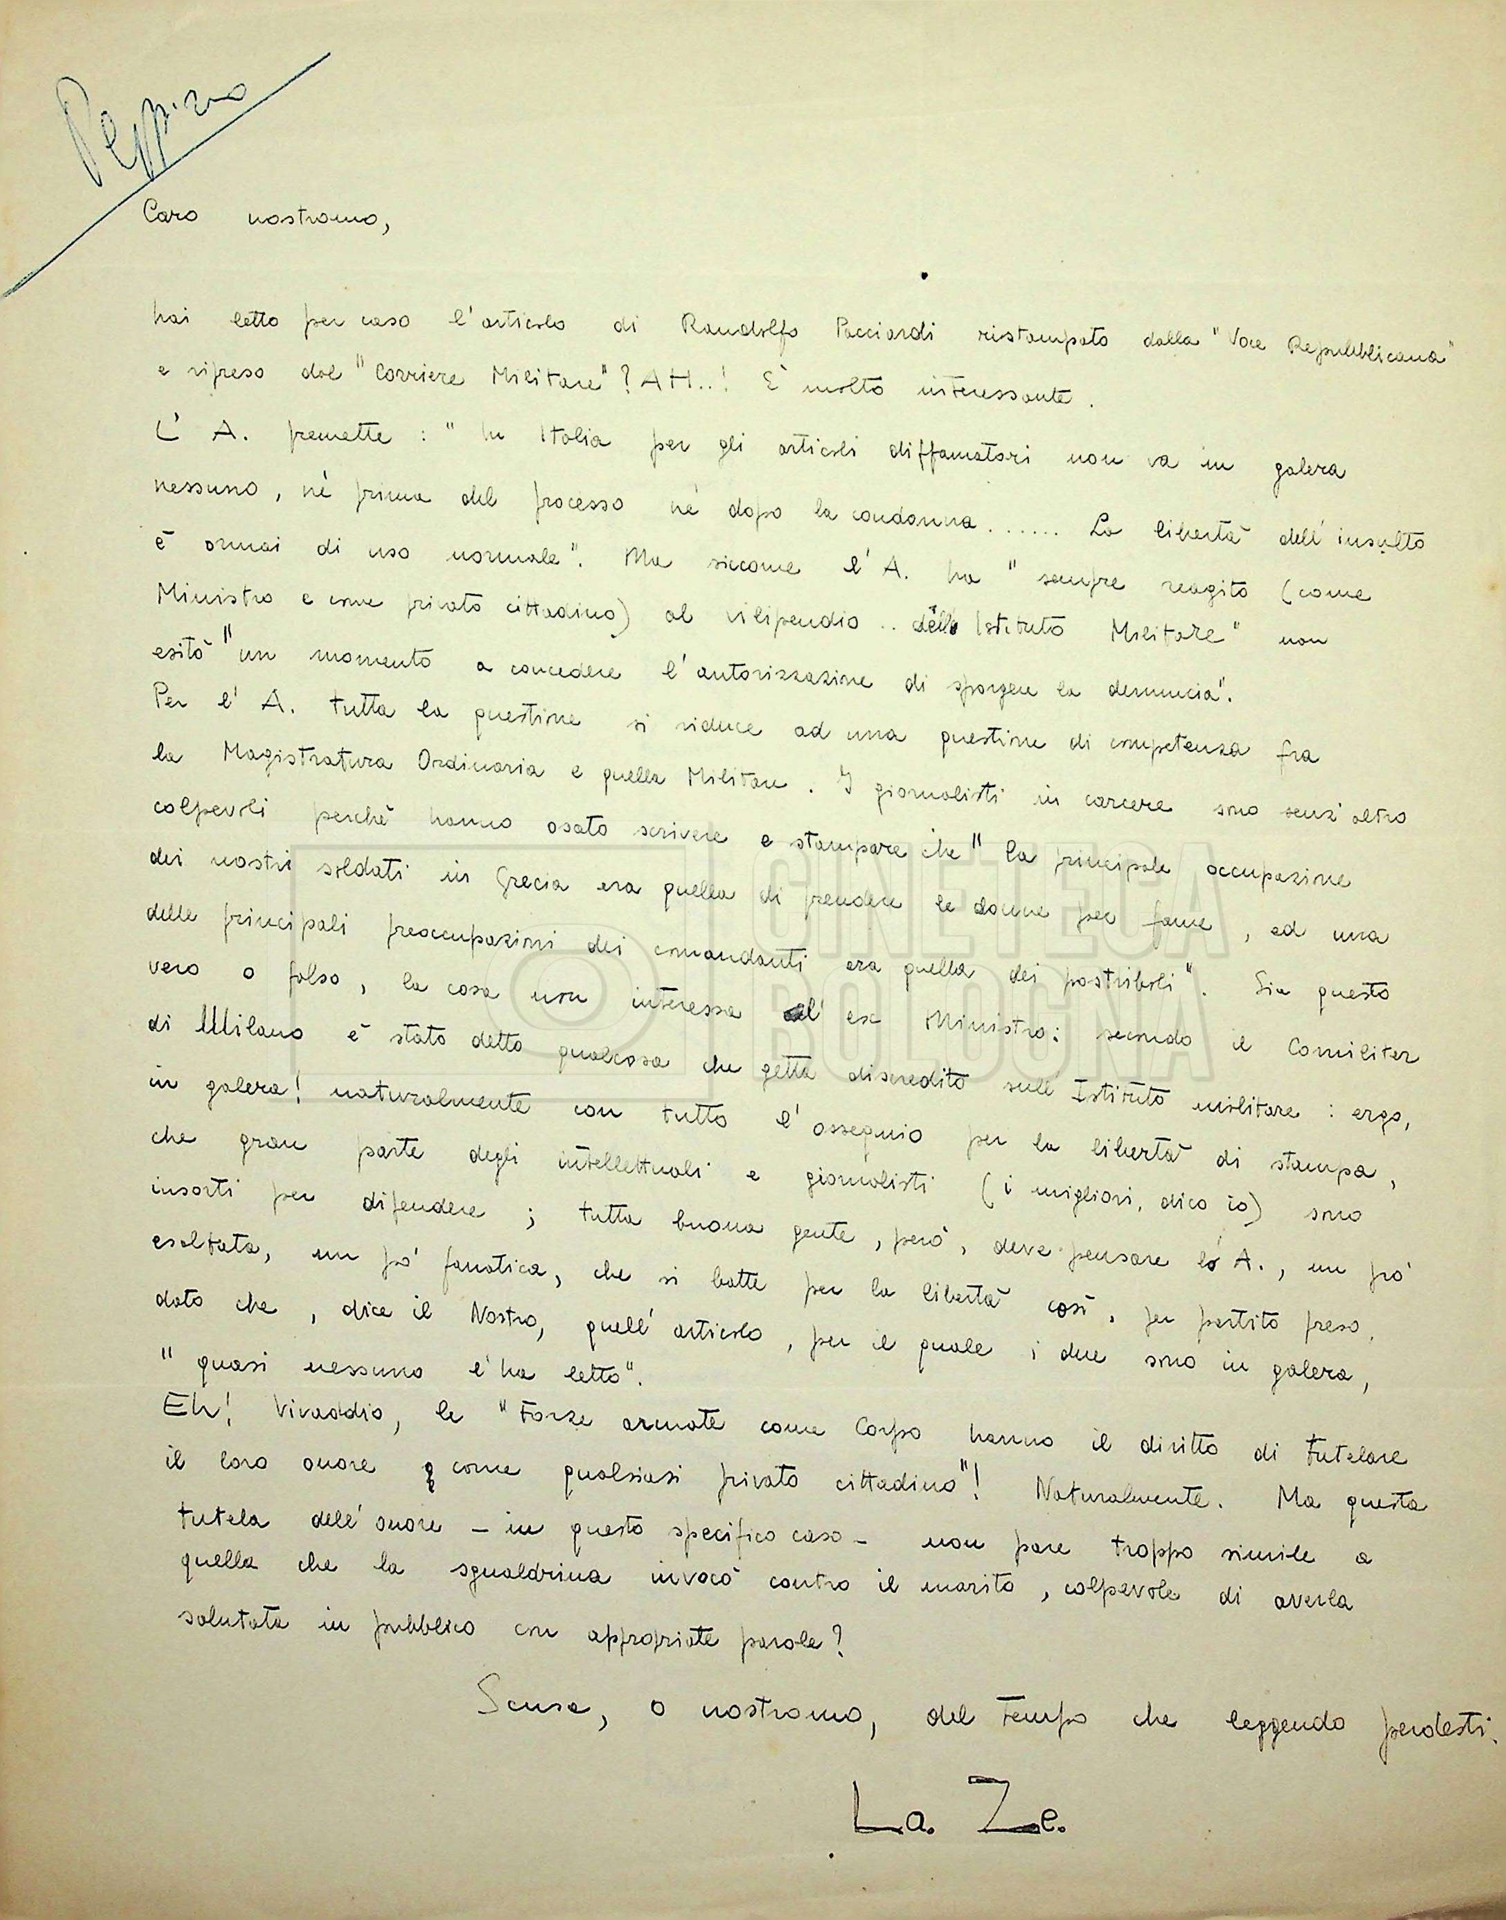 Peppino
Caro nostromo,
hai letto per caso l'articolo di Randolfo Pacciardi ristampato dalla "Voce Repubblicana"
e ripreso dal "Corriere Militare"? AH..! E' molto interessante.
L' A. premette : " In Italia per gli articoli diffamatori non va in galera
nessuno, nè prima del processo nè dopo la condanna ...... La libertà dell'insulto
è ormai di uso normale". Ma siccome l' A. ha " sempre reagito (come
Ministro e come privato cittadino) al vilipendio .. dello Istituto Militare" non
esitò " un momento a concedere l'autorizzazione di sporgere la denuncia".
Per l' A. tutta la questione si riduce ad una questione di competenza fra
la Magistratura Ordinaria e quella Militare. I giornalisti in carcere sono senz'altro
colpevoli perchè hanno osato scrivere e stampare che " la principale occupazione
dei nostri soldati in Grecia era quella di prendere le donne per fame, ed una
delle principali preoccupazioni dei comandanti era quella dei postriboli". Sia questo
vero o falso, la cosa non interessa all' ex Ministro: secondo il Comiliter
di Milano è stato detto qualcosa che getta discredito sull' Istituto militare : ergo,
in galera! naturalmente con tutto l'ossequio per la libertà di stampa,
che gran parte degli intellettuali e giornalisti (i migliori, dico io) sono
insorti per difendere ; tutta buona gente, però, deve pensare lo A., un pò
esaltata, un pò fanatica, che si batte per la libertà così, per partito preso,
dato che, dice il Nostro, quell'articolo, per il quale i due sono in galera,
" quasi nessuno l'ha letto".
Eh! Vivaddio, le " Forze armate come Corpo hanno il diritto di tutelare
il loro onore come qualsiasi privato cittadino"! Naturalmente. Ma questa
tutela dell'onore - in questo specifico caso - non pare troppo simile a
quella che la sgualdrina invocò contro il marito, colpevole di averla
salutata in pubblico con appropriate parole?
Scusa, o nostromo, del tempo che leggendo perdesti.
La. Ze.
CINETECA
BOLOGNA